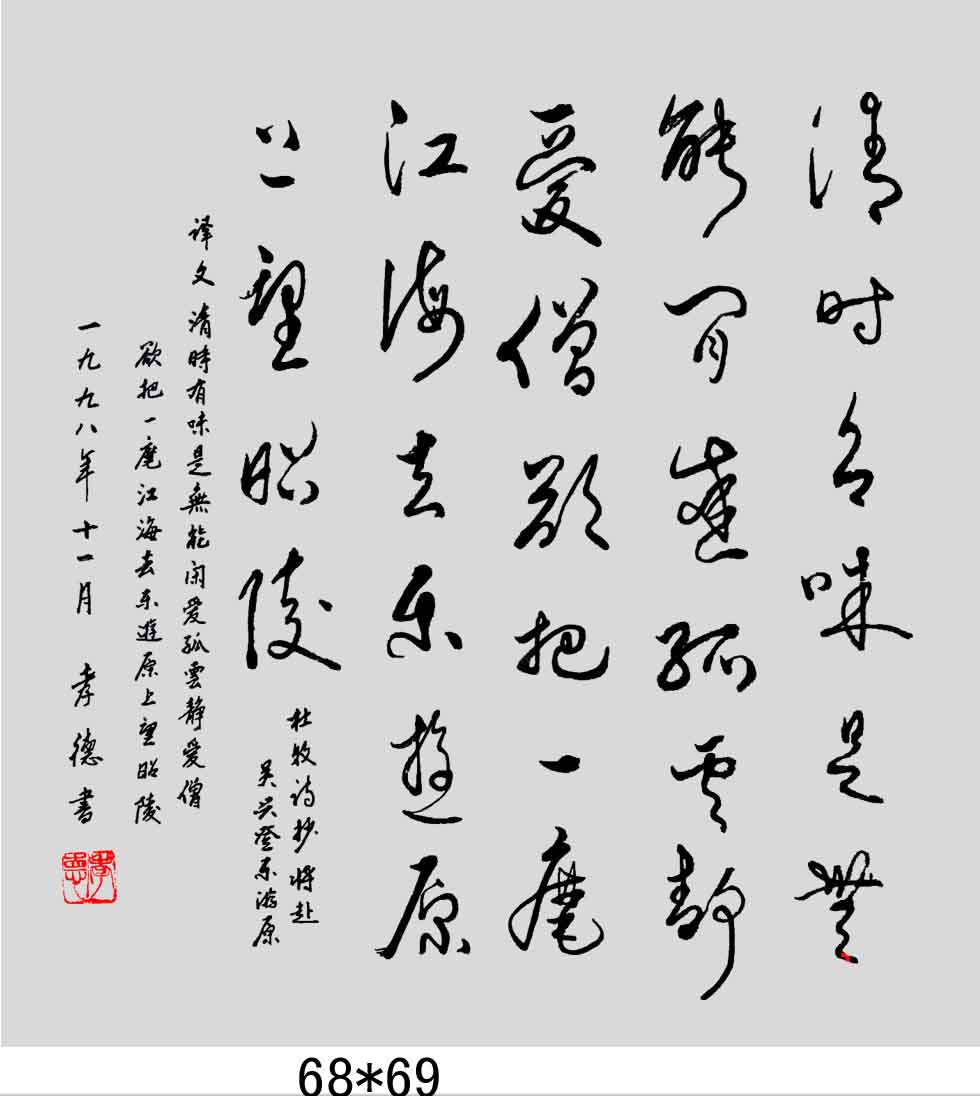 清时有味是無
能闲爱孤雲静
愛僧欲把一麾
江海去乐遊原
上望昭陵
杜牧诗抄将赴
吴兴登乐游原
译文清時有味是無能闲爱孤雲静爱僧
欲把一麾江海去乐遊原上望昭陵
一九九八年十一月 孝德書
68*69